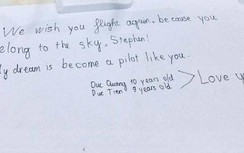 We wish you flight again, because you
elong to the sky, Stephen!
My dream is become a pilot like you.
Duc Quang 10 years old
Duc Tien 9 years old
> Love y